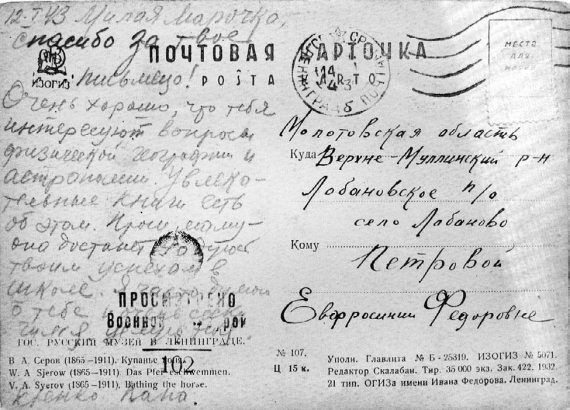 12-I 43 Милая Марочка,
спасибо за твоё
письмецо!
ИЗОГИЗ
ПОЧТОВАЯ КАРТОЧКА
POŜTA KARTO
14 1 43
МЕСТО
ДЛЯ
МАРКИ
Очень хорошо, что тебя
интересуют вопросы
физической географии и
астрономии. Увлека-
тельные книги есть
об этом. Проси маму -
она достанет.
твоим успехам в
школе. Я часто
о тебе
Молотовская область
Куда Верхне-Муллинский р-н
Лобановское п/о
село Лобаново
Кому Петровой
Евфросинии Федоровне
ПРОСМОТРЕНО
Военной Цензурой
102
ГОС. РУССКИЙ МУЗЕЙ В ЛЕНИНГРАДЕ.
В. А. Серов (1865–1911). Купанье лошади.
W. A. Sjerow (1865–1911). Das Pferdeschwemmen.
V. A. Syerov (1865–1911). Bathing the horse.
папа.
№ 107.
Ц 15 к.
Уполн. Главлита № Б - 25319. ИЗОГИЗ № 5071.
Редактор Скалабан. Тир. 35 000 экз. Зак. 422. 1932.
21 тип. ОГИЗа имени Ивана Федорова. Ленинград.